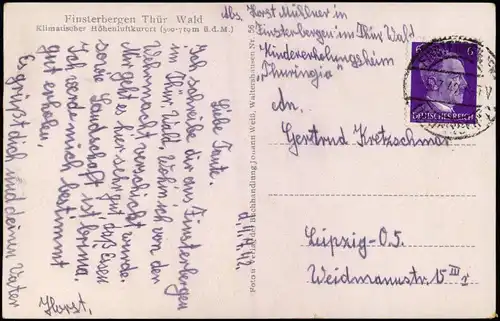 Finsterbergen Thür Wald
Klimatischer Höhenluftkurort (500-710m ü.d.M.)
Abs. Horst Müllner in
Finsterbergen im Thür Wald
Kindererholungsheim
„Thuringia"
An.
Gertrud Kretzschmar
Leipzig-O5.
Weidmannstr. 15 III r
6 6
DEUTSCHES REICH
Foto u Verlag der Buchhandlung Johann Weiß, Waltershausen Nr. 56
d. 4.7.42
Liebe Tante.
Ich schreibe dir aus Finsterbergen
im Thür. Wald, wohin ich von der
Wehrmacht verschickt wurde.
Mir geht es hier sehr gut, das Essen
sowie Landschaft ist prima.
Ich werde mich bestimmt
gut erholen.
Es grüßt dich und deinen Vater
Horst.